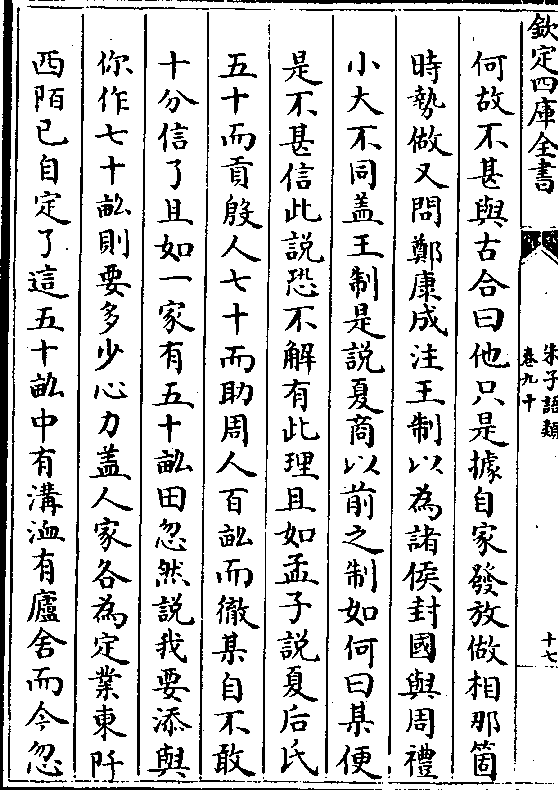 欽定四庫全書
朱子語類
卷九十
十七
何故不甚與古合曰他只是據自家發放做相那箇
時勢做又問鄭康成注王制以為諸侯封國與周禮
小大不同盖王制是説夏商以前之制如何曰某便
是不甚信此説恐不解有此理且如孟子説夏后氏
五十而貢殷人七十而助周人百畝而徹某自不敢
十分信了且如一家有五十畝田忽然説我要添與
你作七十畝則要多少心力盖人家各為定業東阡
西陌已自定了這五十畝中有溝洫有廬舍而今忽